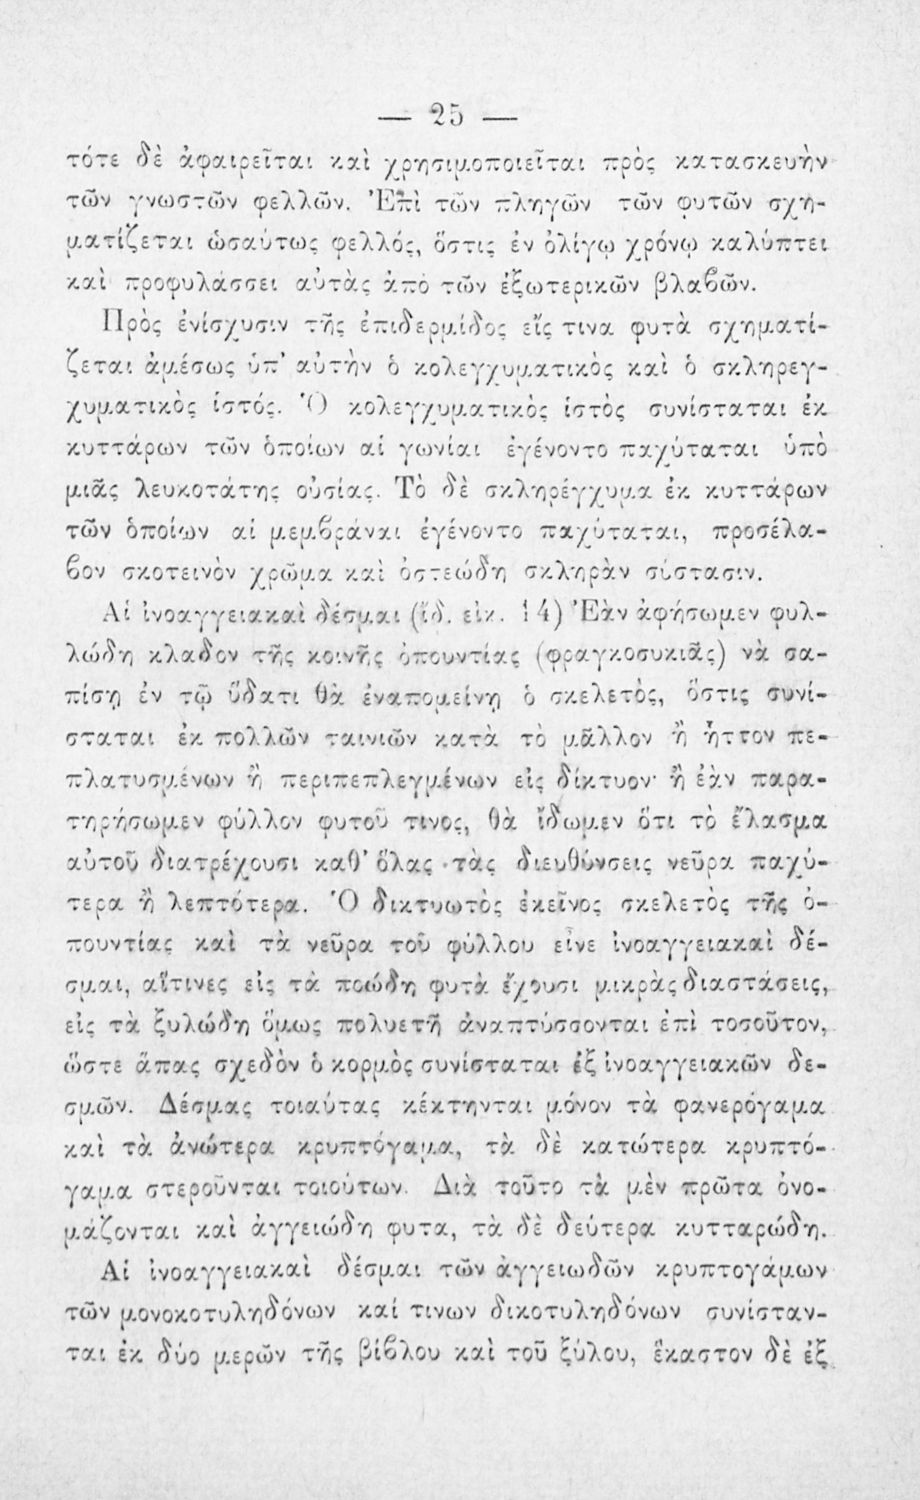 — 25 —
τότε δὲ ἀφαιρεῖται καὶ χρησιμοποιεῖται πρὸς κατασκευὴν
τῶν γνωστῶν φελλῶν. Ἐπὶ τῶν πληγῶν τῶν φυτῶν σχη-
ματίζεται ὡσαύτως φελλός, ὅστις ἐν ὀλίγῳ χρόνῳ καλύπτει
καὶ προφυλάσσει αὐτὰς ἀπὸ τῶν ἐξωτερικῶν βλαϐῶν.
Πρὸς ἐνίσχυσιν τῆς ἐπιδερμίδος εἴς τινα φυτὰ σχηματί-
ζεται ἀμέσως ὑπ’ αὐτὴν ὁ κολεγχυματικὸς καὶ ὁ σκληρεγ-
χυματικὸς ἱστός. Ὁ κολεγχυματικὸς ἱστὸς συνίσταται ἐκ
κυττάρων τῶν ὁποίων αἱ γωνίαι ἐγένοντο παχύταται ὑπὸ
μιᾶς λευκοτάτης οὐσίας. Τὸ δὲ σκληρέγχυμα ἐκ κυττάρων
τῶν ὁποίων αἱ μεμϐράναι ἐγένοντο παχύταται, προσέλα-
ϐον σκοτεινὸν χρῶμα καὶ ὀστεώδη σκληρὰν σύστασιν.
Αἱ ἰνοαγγειακαὶ δέσμαι (ἴδ. εἰκ. 14) Ἐὰν ἀφήσωμεν φυλ-
λώδη κλαδον τῆς κοινῆς ὀπουντίας (φραγκοσυκιᾶς) νὰ σα-
πίσῃ ἐν τῷ ὕδατι θὰ ἐναπομείνῃ ὁ σκελετὸς, ὅστις συνί-
σταται ἐκ πολλῶν ταινιῶν κατὰ τὸ μᾶλλον ἢ ἧττον πε-
πλατυσμένων ἢ περιπεπλεγμένων εἰς δίκτυον· ἢ ἐὰν παρα-
τηρήσωμεν φύλλον φυτοῦ τινος, θὰ ἴδωμεν ὅτι τὸ ἔλασμα
αὐτοῦ διατρέχουσι καθ’ ὅλας τὰς διευθύνσεις νεῦρα παχύ-
τερα ἢ λεπτότερα. Ὁ δικτυωτὸς ἐκεῖνος σκελετὸς τῆς ὀ-
πουντίας καὶ τὰ νεῦρα τοῦ φύλλου εἶνε ἰνοαγγειακαὶ δέ-
σμαι, αἵτινες εἰς τὰ ποώδη φυτὰ ἔχουσι μικρὰς διαστάσεις,
εἰς τὰ ξυλώδη ὅμως πολυετῆ ἀναπτύσσονται ἐπὶ τοσοῦτον,
ὥστε ἅπας σχεδὸν ὁ κορμὸς συνίσταται ἐξ ἰνοαγγειακῶν δε-
σμῶν. Δέσμας τοιαύτας κέκτηνται μόνον τὰ φανερόγαμα
καὶ τὰ ἀνώτερα κρυπτόγαμα, τὰ δὲ κατώτερα κρυπτό-
γαμα στεροῦνται τοιούτων. Διὰ τοῦτο τὰ μὲν πρῶτα ὀνο-
μάζονται καὶ ἀγγειώδη φυτα, τὰ δὲ δεύτερα κυτταρώδη.
Αἱ ἰνοαγγειακαὶ δέσμαι τῶν ἀγγειωδῶν κρυπτογάμων
τῶν μονοκοτυληδόνων καί τινων δικοτυληδόνων συνίσταν-
ται ἐκ δύο μερῶν τῆς βίϐλου καὶ τοῦ ξύλου, ἕκαστον δὲ ἐξ